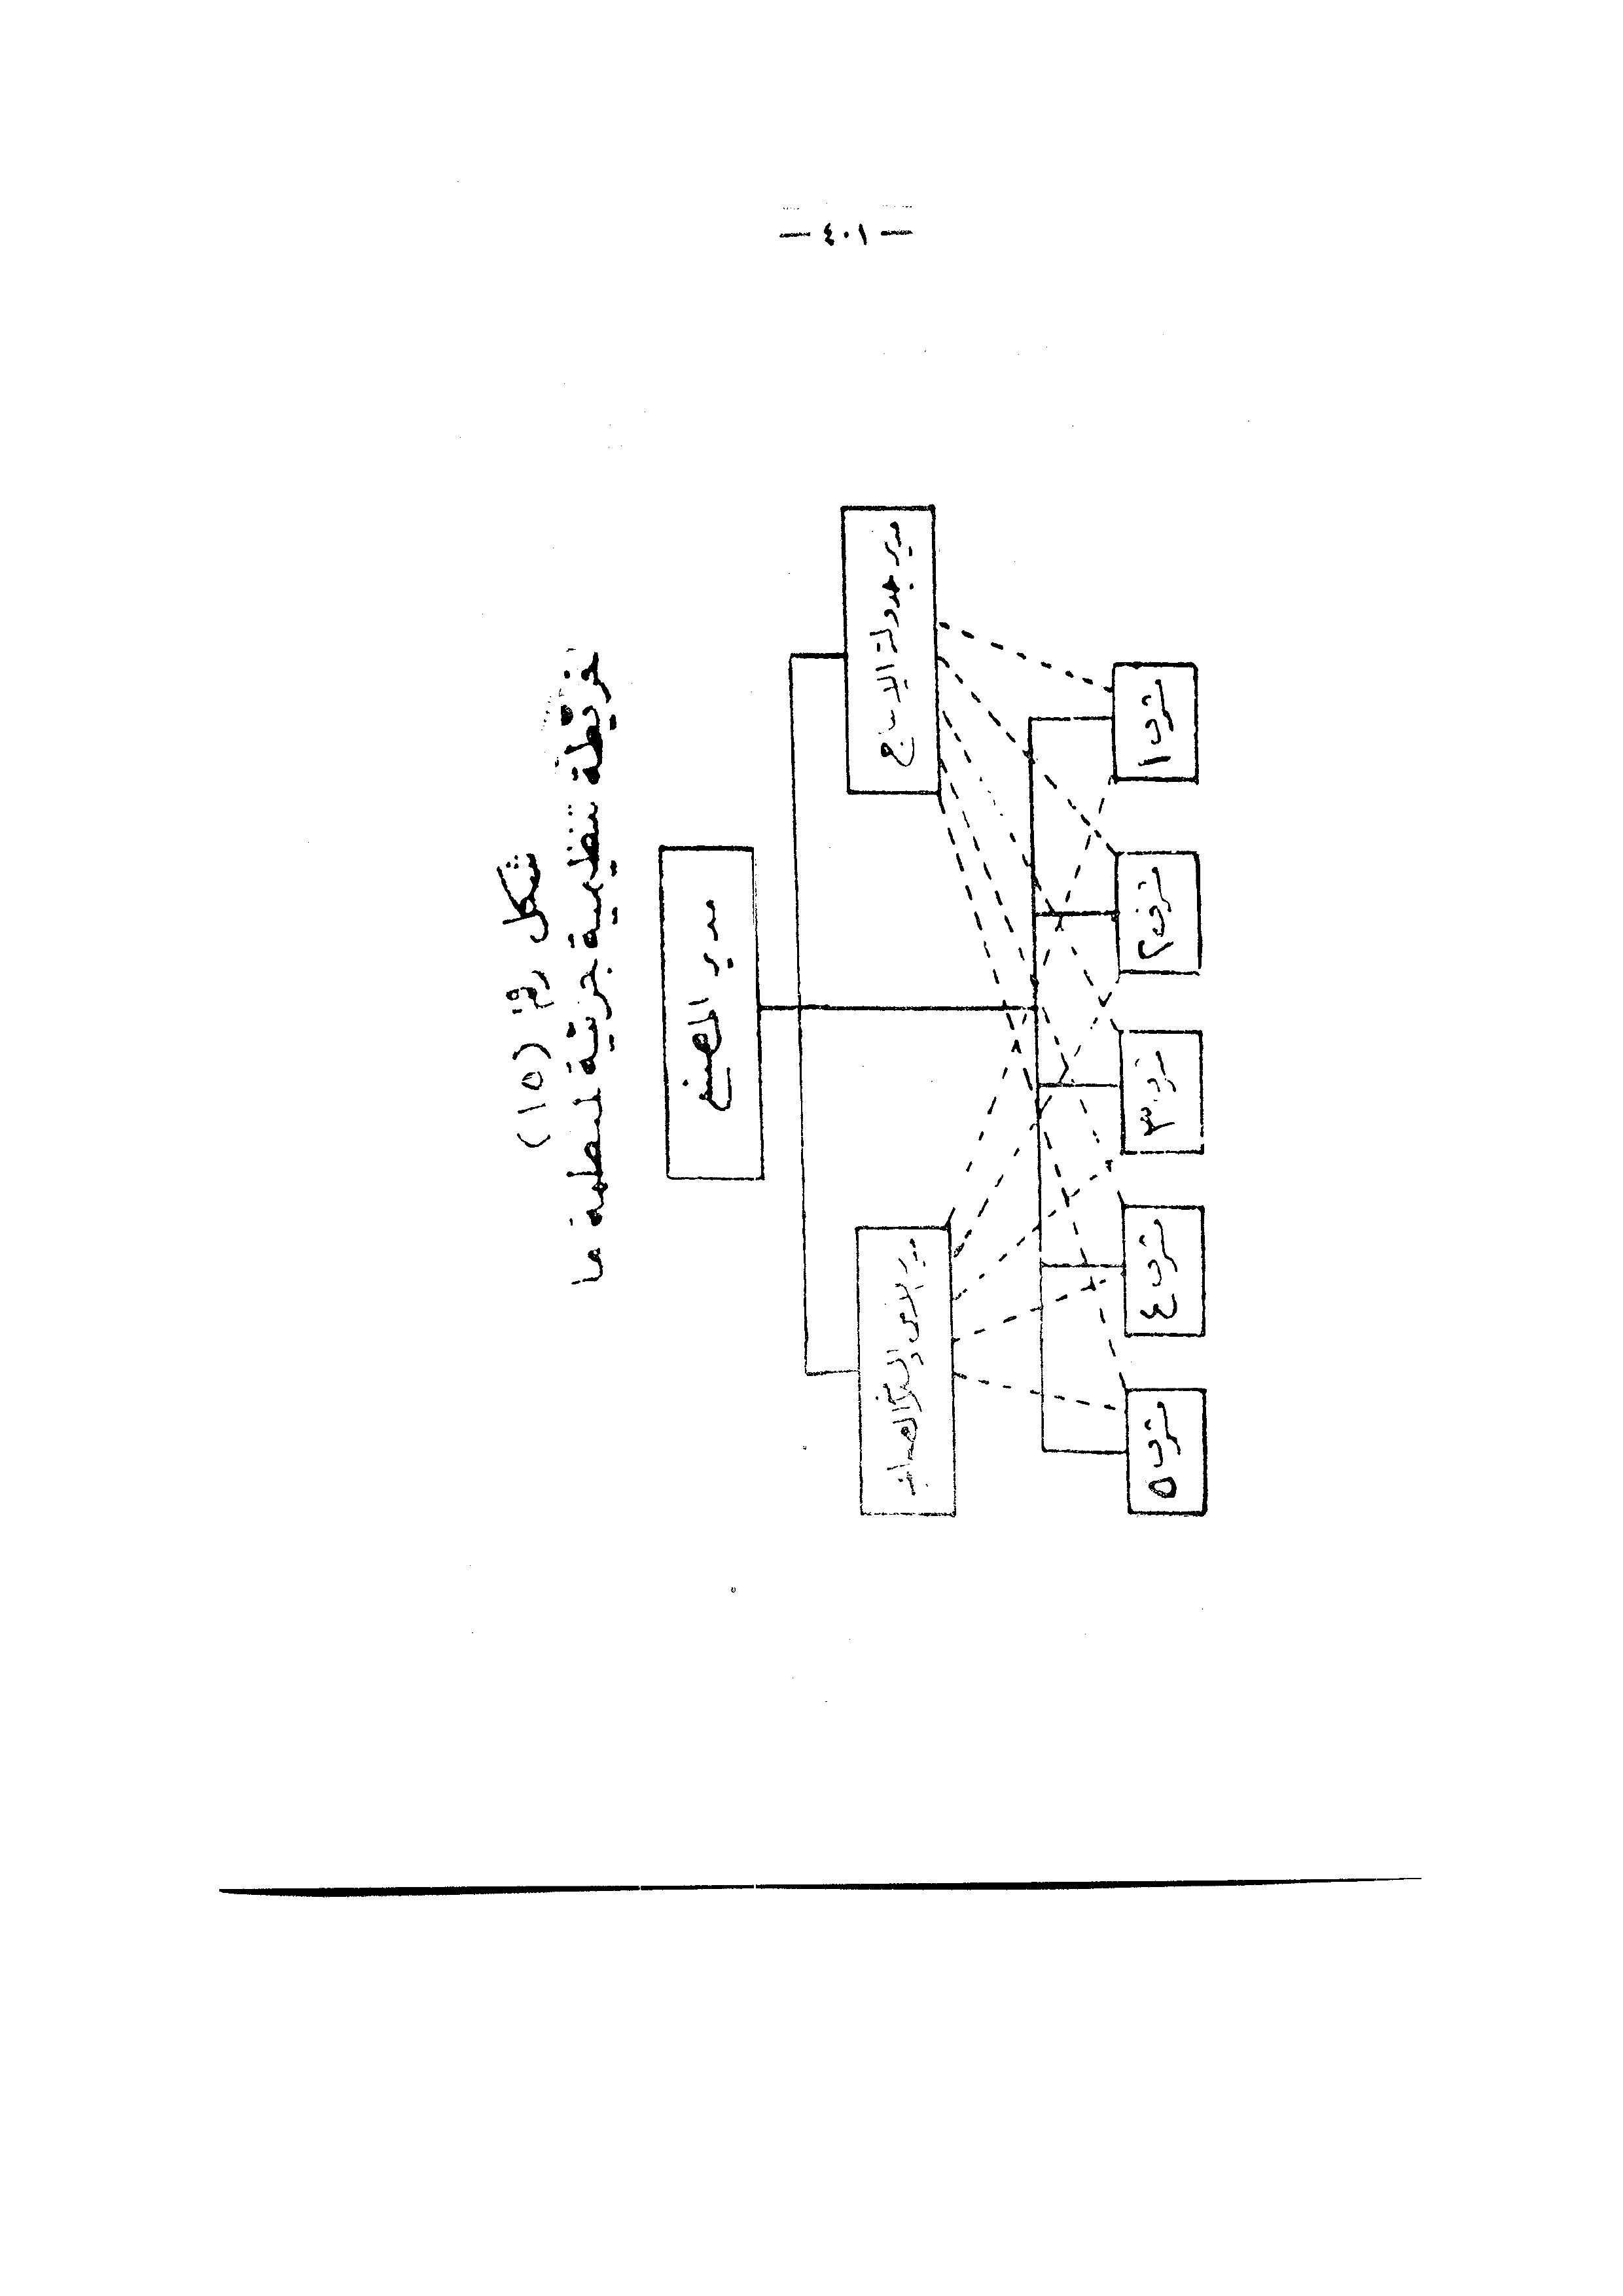 — ٤٠١ —
شكل رقم (١٥)
خريطة تنظيمية جزئية لمنظمة ما
مدير المصنع
مدير جدولة الإنتاج
مدير الأمن
مشرف ١
مشرف ٢
مشرف ٣
مشرف ٤
مشرف ٥